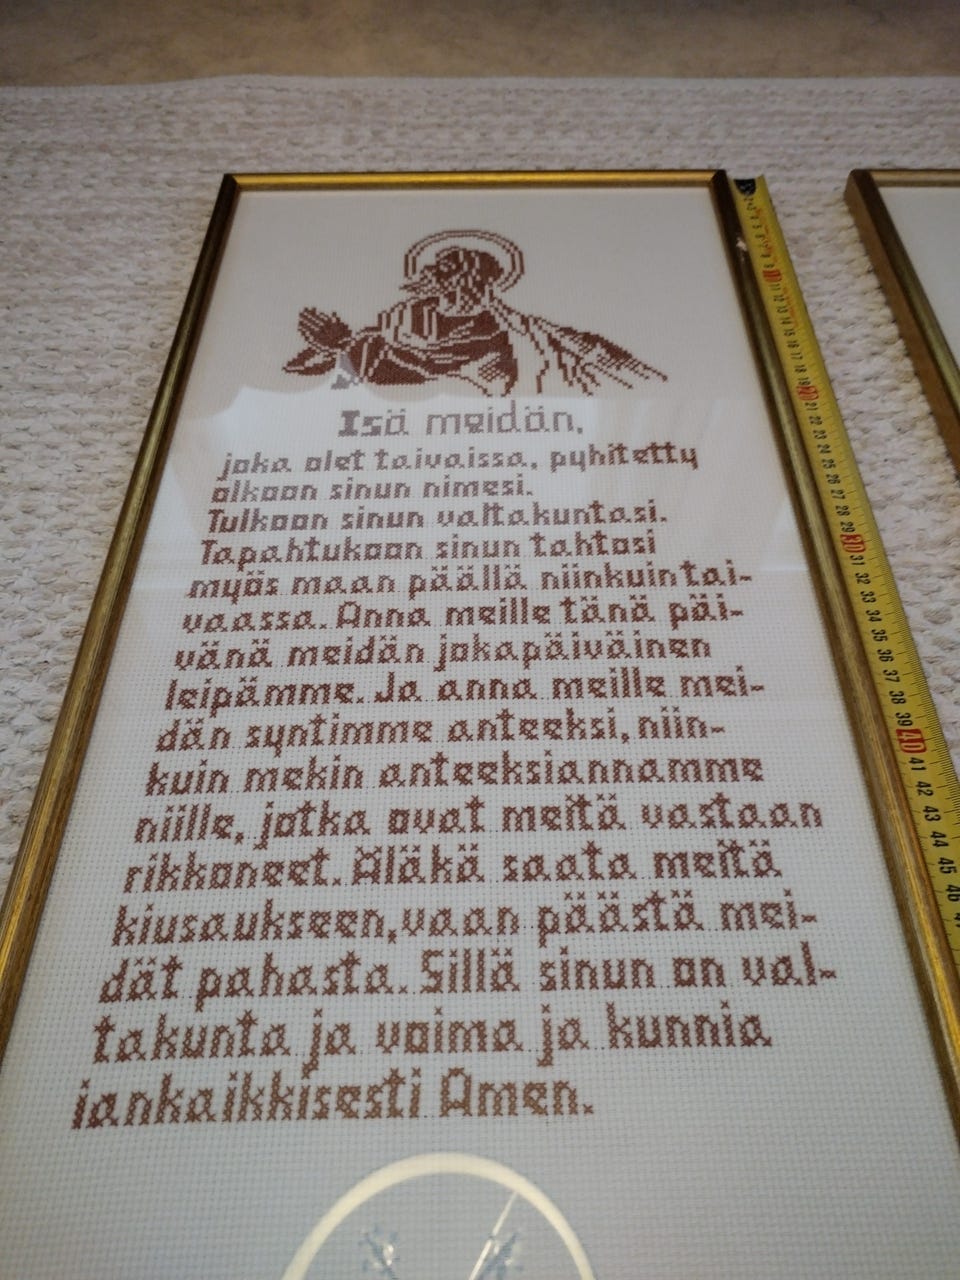 Isä meidän,
joka olet taivaissa, pyhitetty
olkoon sinun nimesi.
Tulkoon sinun valtakuntasi.
Tapahtukoon sinun tahtosi
myös maan päällä niinkuin tai-
vaassa. Anna meille tänä päi-
vänä meidän jokapäiväinen
leipämme. Ja anna meille mei-
dän syntimme anteeksi, niin-
kuin mekin anteeksiannamme
niille, jotka ovat meitä vastaan
rikkoneet. Äläkä saata meitä
kiusaukseen, vaan päästä mei-
dät pahasta. Sillä sinun on val-
takunta ja voima ja kunnia
iankaikkisesti Amen.
10
11
12
13
14
15
16
17
18
19
20
21
22
23
24
25
26
27
28
29
30
31
32
33
34
35
36
37
38
39
40
41
42
43
44
45
46